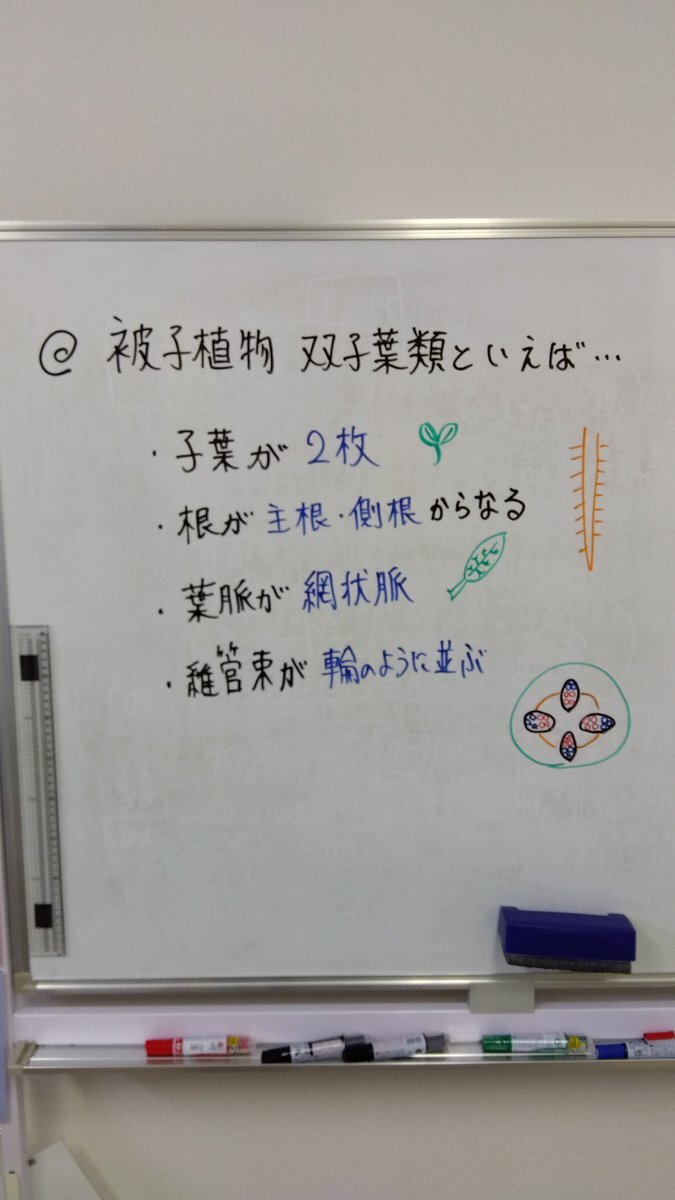 @ 被子植物 双子葉類といえば…
・子葉が 2枚
・根が 主根・側根からなる
・葉脈が 網状脈
・維管束が 輪のように並ぶ